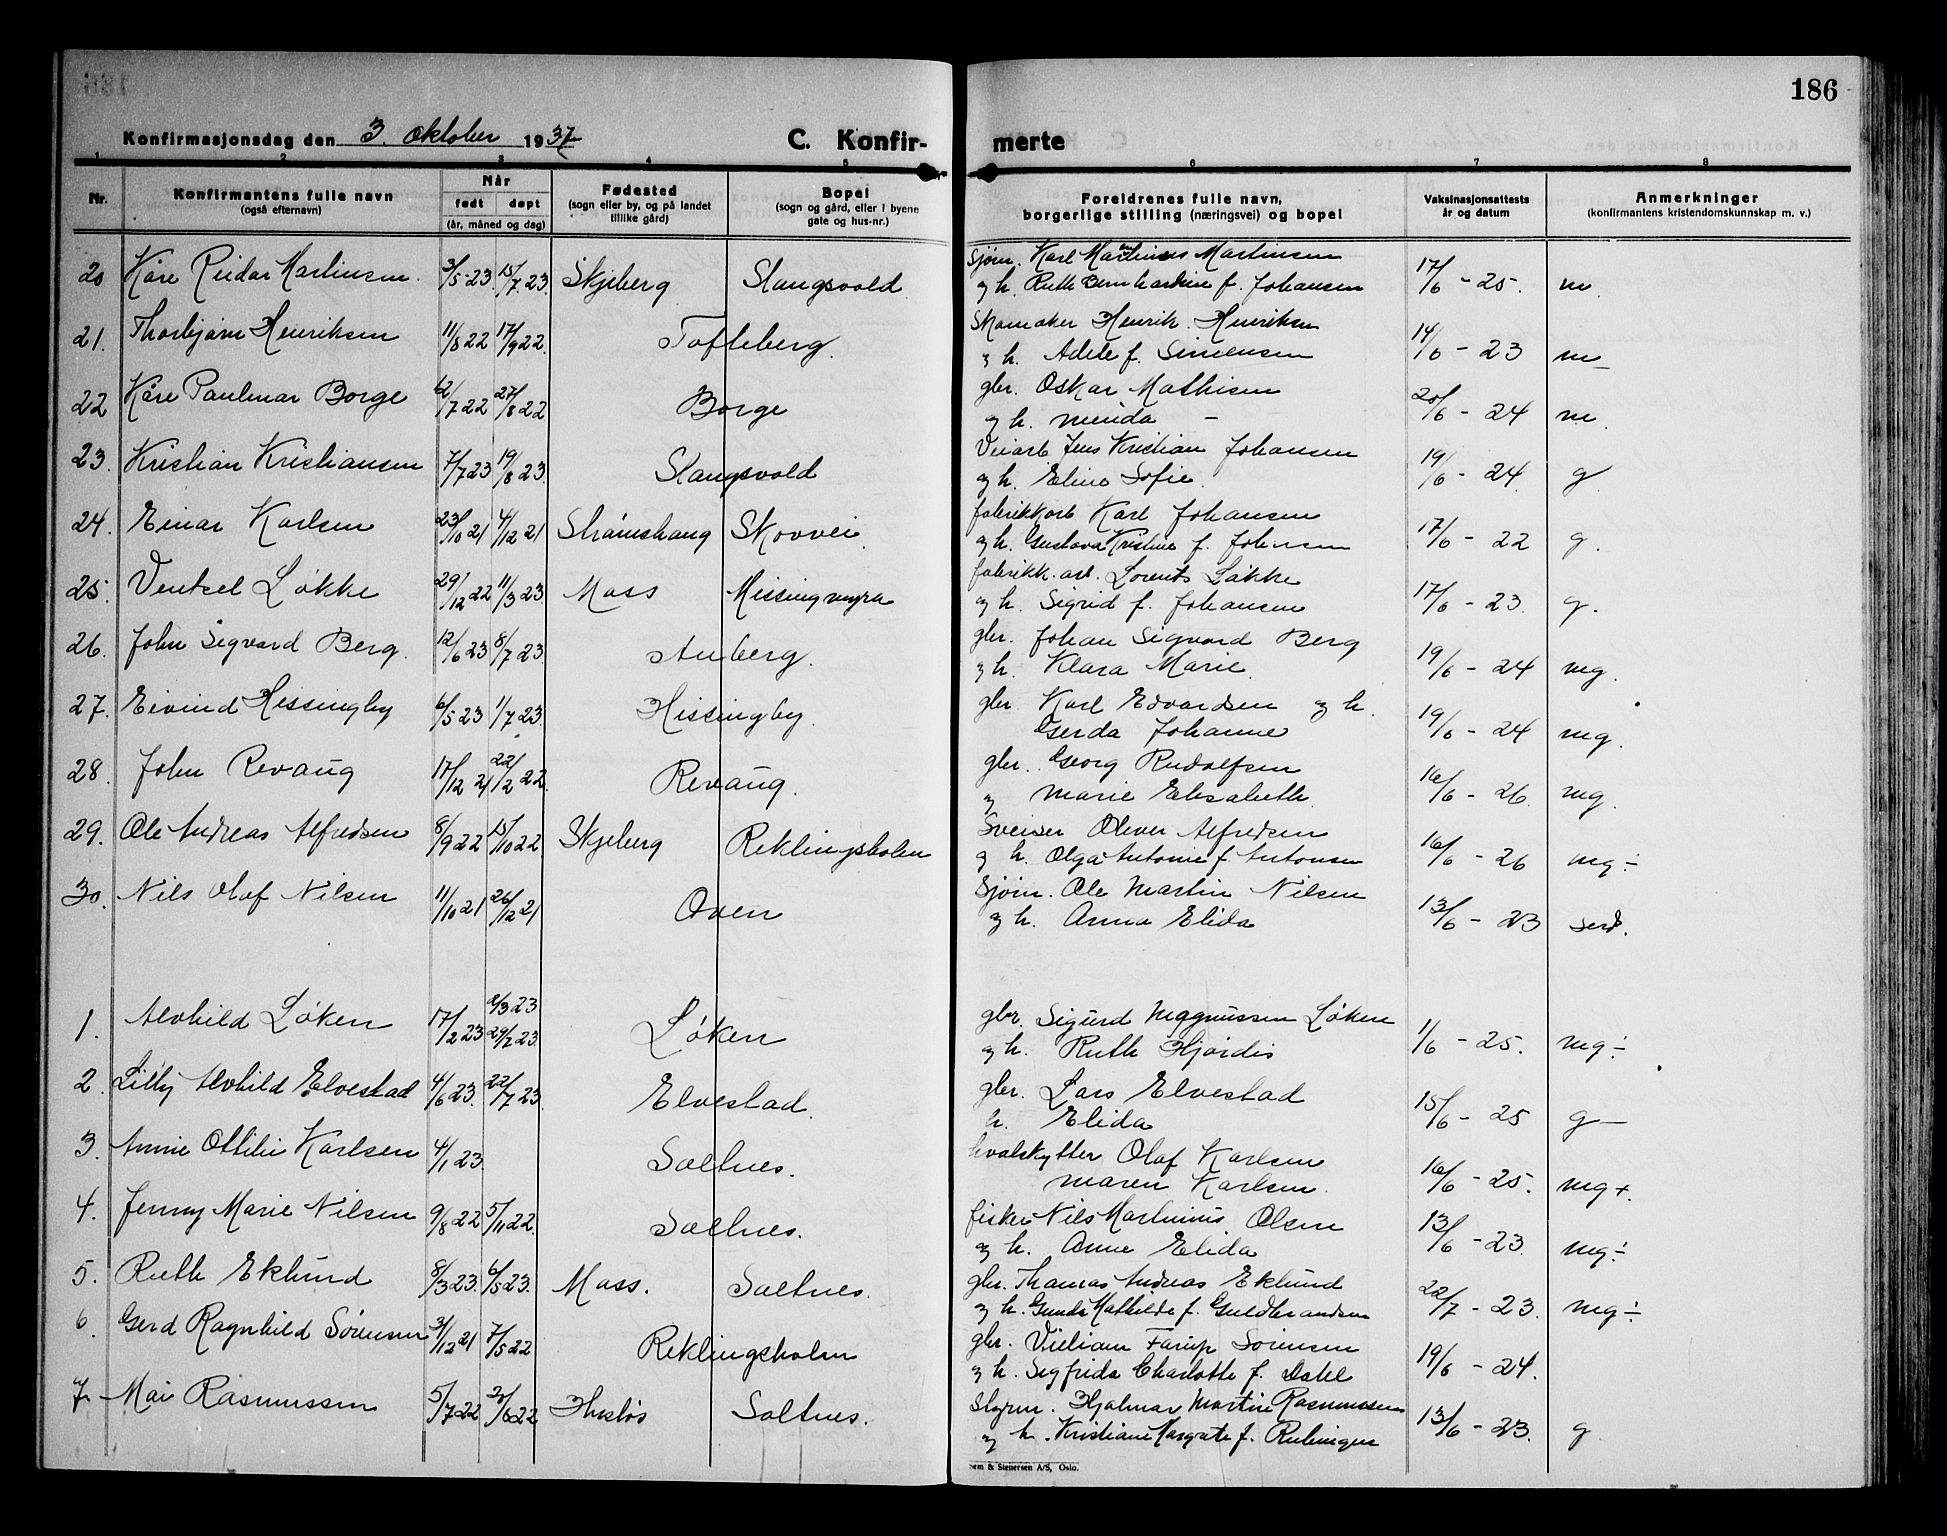 186
Konfirmasjonsdag den 3. Oktober 1937 C. Konfir-
merte
1 2 3 4 5 6 7 8
Nr.
Konfirmantens fulle navn
(også efternavn)
Når
født døpt
(år, måned og dag)
Fødested
(sogn eller by, og på landet
tillike gård)
Bopel
(sogn og gård, eller i byene
gate og hus-nr.)
Foreldrenes fulle navn,
borgerlige stilling (næringsvei) og bopel
Vaksinasjonsattests
år og datum
Anmerkninger
(konfirmantens kristendomskunnskap m. v.)
20 Kåre Reidar Martinsen. 3/5-23 15/7.23 Skjeberg Slangsvold Sjøm. Karl Martinius Martinsen
og h. Ruth Bernhardine f. Johansen 17/6 - 25. m
21. Thorbjørn Henriksen 11/8 22 17/9 22. Tofteberg. Skomaker Henrik Henriksen
og h. Adele f. Simensen 14/6 - 23 m
22 Kåre Paulmar Borge 12/7 22 27/8 22 Borge gbr. Oskar Mathisen
og h. Minda - 20/6 - 24 m
23. Kristian Kristiansen 7/7 23 19/8 23. Slangsvold Veiarb Jens Kristian Johansen
og h. Eline Sofie. 19/6 - 24. g
24. Einar Karlsen 23/10 21 4/12 21 Strømshaug Skovvei fabrikkarb Karl Johansen
og h. Gustava Kristine f. Johansen 17/6 - 22 g.
25. Ventsel Løkke 29/12 22 11/3 23. Moss Missingmyra fabrikk. arb. Lorents Løkke
og h. Sigrid f. Johansen 17/6 - 23. g.
26. John Sigvard Berg. 12/6 23 8/7 23. Anberg. gbr. Johan Sigvard Berg
og h. Klara Marie. 19/6 - 24 mg.
27. Eivind Hissingby 6/5 23 1/7 23. Hissingby. gbr. Karl Edvardsen og h.
Gerda Johanne 19/6 - 24 mg.
28. John Revaug 17/12 21 22/2 22. Revaug. gbr. Georg Rudolfsen
og Marie Elisabeth 16/6 - 26. mg.
29. Ole Andreas Alfredsen 8/9 22 15/10 22. Skjeberg Reklingsholm Sveiser Oliver Alfredsen
og h. Olga Antonie f. Antonsen 16/6 - 26 mg ÷
30. Nils Olaf Nilsen 11/10 21 26/12 21 Oven Sjøm. Ole Martin Nilsen
og h. Anna Elida 13/6 - 23
1. Alvhild Løken 17/2 23 2/3 23
29/7 23. Løken gbr. Sigurd Magnussen Løken
og h. Ruth Hjørdis 1/6 - 25. mg ÷
2. Lilly Alvhild Elvestad 4/6 23. 22/7 23. Elvestad. gbr. Lars Elvestad
h. Elida 15/6 - 25 g -
3. Annie Ottilie Karlsen 4/1 23 Saltnes. hvalskytter Olaf Karlsen
Maren Karlsen. 16/6 - 25. mg +.
4. Jenny Marie Nilsen 9/8 22 5/11 22. Saltnes. fisker Nils Martinius Olsen
og h. Anne Elida 13/6 - 23. mg ÷
5. Ruth Eklund 8/3 23. 6/5 23. Moss. Saltnes. gbr. Thomas Andreas Eklund
og h. Gunda Mathilde f. Guldbrandsen 22/7 - 23. mg ÷
6. Gerd Ragnhild Sørensen 31/12 21 7/5 22 Reklingsholm gbr. Viliam Farup Sørensen
og h. Sigfrida Charlotte f. Dahl 19/6 - 24.
7 Mai Rasmussen 5/7 22 Saltnes. Styrm. Hjalmar Martin Rasmussen
og h. Kristiane Margrete f. 13/6 - 23. g
Sem & Stenersen A/S, Oslo.